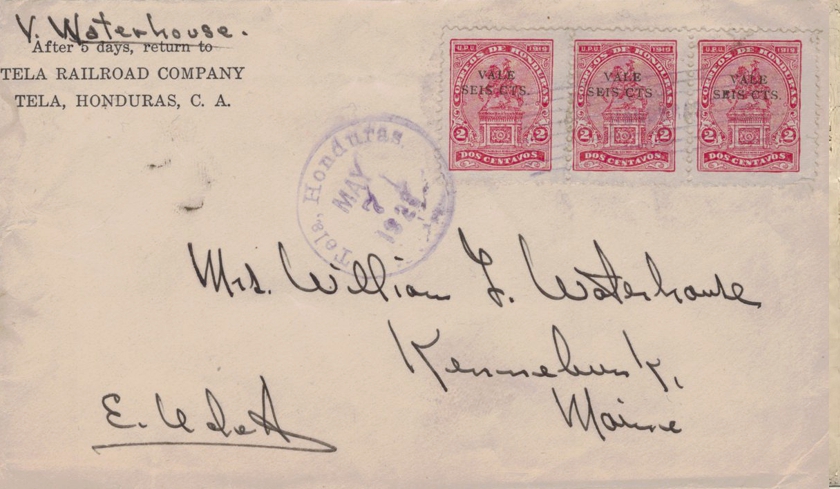 V. Waterhouse.
After 5 days, return to
TELA RAILROAD COMPANY
TELA, HONDURAS, C. A.
U.P.U. 1919
CORREOS DE HONDURAS
VALE
SEIS CTS.
2 2
DOS CENTAVOS
U.P.U. 1919
CORREOS DE HONDURAS
VALE
SEIS CTS.
2 2
DOS CENTAVOS
U.P.U. 1919
CORREOS DE HONDURAS
VALE
SEIS CTS.
2 2
DOS CENTAVOS
Tela, Honduras
MAY
7
Mrs. William L. Waterhouse
Kennebunk,
Maine